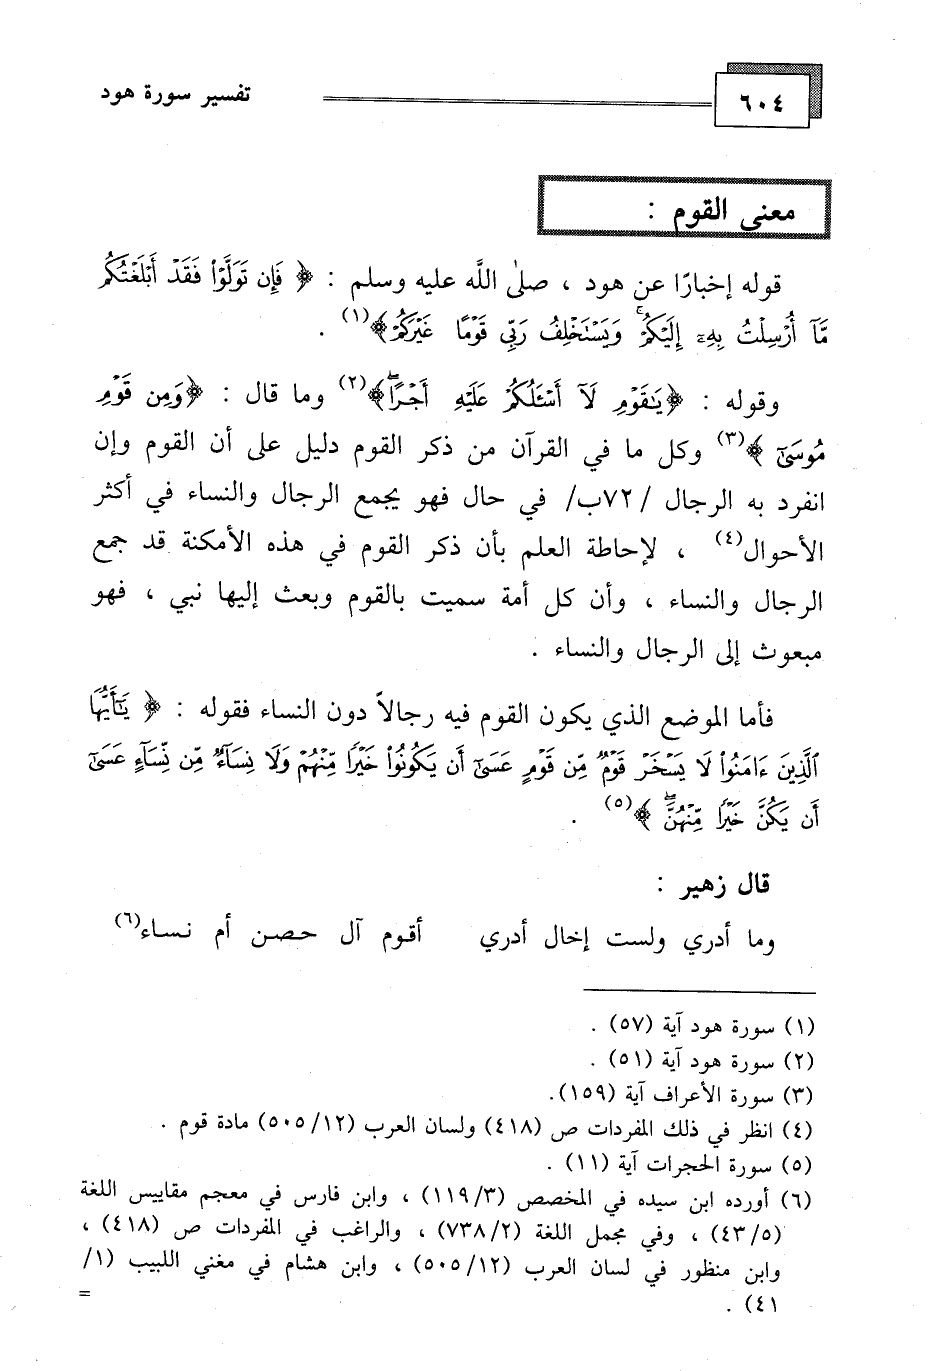 ٦٠٤ تفسير سورة هود
معنى القوم :
قوله إخبارًا عن هود ، صلى الله عليه وسلم : ﴿ فَإِن تَوَلَّوْا۟ فَقَدْ أَبْلَغْتُكُم
مَّآ أُرْسِلْتُ بِهِۦٓ إِلَيْكُمْ ۚ وَيَسْتَخْلِفُ رَبِّى قَوْمًا غَيْرَكُمْ﴾(١) .
وقوله : ﴿يَٰقَوْمِ لَآ أَسْـَٔلُكُمْ عَلَيْهِ أَجْرًا ۖ﴾(٢) وما قال : ﴿وَمِن قَوْمِ
مُوسَىٰٓ ﴾(٣) وكل ما في القرآن من ذكر القوم دليل على أن القوم وإن
انفرد به الرجال /٧٢ب/ في حال فهو يجمع الرجال والنساء في أكثر
الأحوال(٤) ، لإحاطة العلم بأن ذكر القوم في هذه الأمكنة قد جمع
الرجال والنساء ، وأن كل أمة سميت بالقوم وبعث إليها نبي ، فهو
مبعوث إلى الرجال والنساء .
فأما الموضع الذي يكون القوم فيه رجالاً دون النساء فقوله : ﴿ يَٰٓأَيُّهَا
ٱلَّذِينَ ءَامَنُوا۟ لَا يَسْخَرْ قَوْمٌ مِّن قَوْمٍ عَسَىٰٓ أَن يَكُونُوا۟ خَيْرًا مِّنْهُمْ وَلَا نِسَآءٌ مِّن نِّسَآءٍ عَسَىٰٓ
أَن يَكُنَّ خَيْرًا مِّنْهُنَّ ۖ ﴾(٥) .
قال زهير :
وما أدري ولست إخال أدري أقوم آل حصن أم نساء(٦)
(١) سورة هود آية (٥٧) .
(٢) سورة هود آية (٥١) .
(٣) سورة الأعراف آية (١٥٩).
(٤) انظر في ذلك المفردات ص (٤١٨) ولسان العرب (٥٠٥/١٢) مادة قوم .
(٥) سورة الحجرات آية (١١) .
(٦) أورده ابن سيده في المخصص (١١٩/٣) ، وابن فارس في معجم مقاييس اللغة
(٤٣/٥) ، وفي مجمل اللغة (٧٣٨/٢) ، والراغب في المفردات ص (٤١٨) ،
وابن منظور في لسان العرب (٥٠٥/١٢) ، وابن هشام في مغني اللبيب (١/
٤١) . =